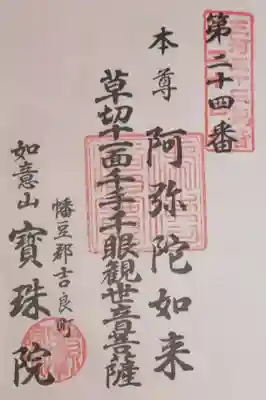 第二十四番
本尊 阿弥陀如来
草切十一面千手千眼観世音菩薩
幡豆郡吉良町
如意山 寶珠院